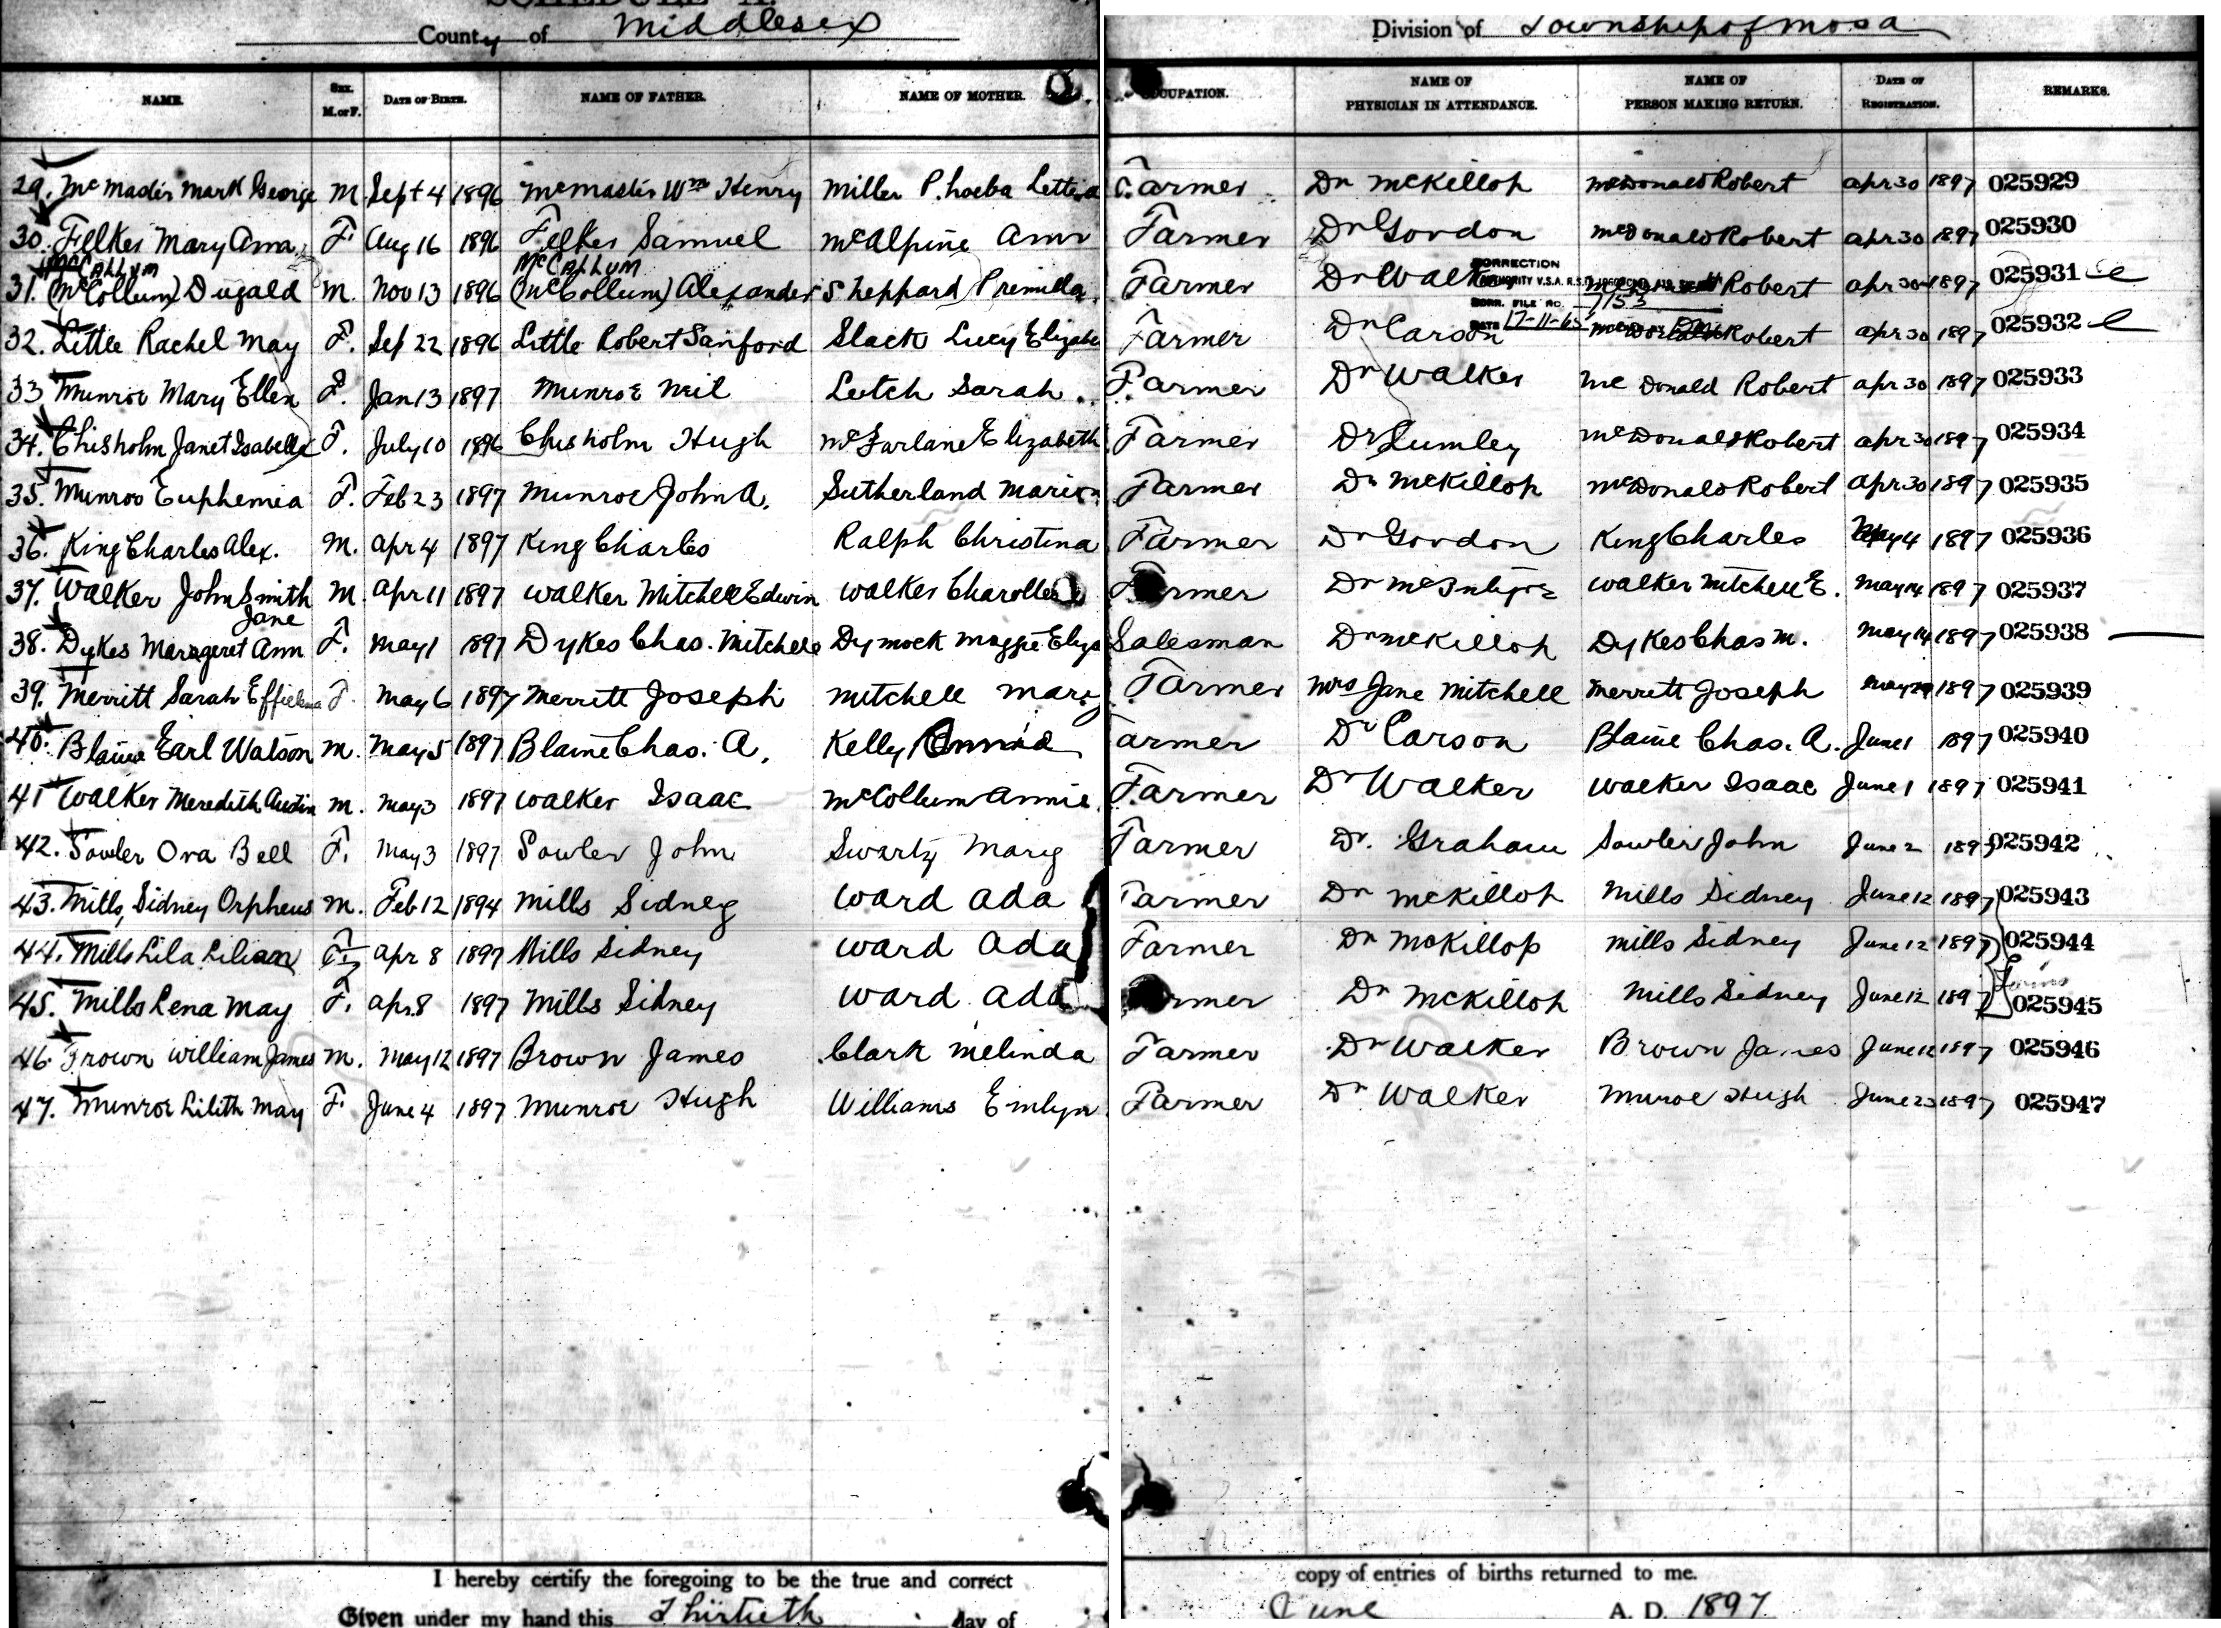 SCHEDULE A.
County of Middlesex Division of Township of Mosa
NAME. SEX. M. or F. DATE OF BIRTH. NAME OF FATHER. NAME OF MOTHER. OCCUPATION. NAME OF PHYSICIAN IN ATTENDANCE. NAME OF PERSON MAKING RETURN. DATE OF REGISTRATION. REMARKS.
29. McMaster Mark George M. Sept 4 1896 McMaster Wm Henry Miller Phoeba Lettia Farmer Dr McKillop McDonald Robert Apr 30 1897 025929
30. Felker Mary Ann F. Aug 16 1896 Felker Samuel McAlpine Ann Farmer Dr Gordon McDonald Robert Apr 30 1897 025930
McCALLUM McCALLUM CORRECTION
31. (McCollum) Dugald M. Nov 13 1896 (McCollum) Alexander Sheppard Premilla Farmer Dr Walker Robert Apr 30 1897 025931
CORR. FILE NO. 7153
DATE 17-11-65
32. Little Rachel May F. Sep 22 1896 Little Robert Sanford Slack Lucy Elizabe Farmer Dr Carson McDonald Robert Apr 30 1897 025932
33 Munroe Mary Ellen F. Jan 13 1897 Munroe Neil Leitch Sarah Farmer Dr Walker McDonald Robert Apr 30 1897 025933
34. Chisholm Janet Isabella F. July 10 1896 Chisholm Hugh McFarlane Elizabeth Farmer Dr Lumley McDonald Robert Apr 30 1897 025934
35. Munroe Euphemia F. Feb 23 1897 Munroe John A. Sutherland Marion Farmer Dr McKillop McDonald Robert Apr 30 1897 025935
36. King Charles Alex. M. Apr 4 1897 King Charles Ralph Christina Farmer Dr Gordon King Charles May 4 1897 025936
37. Walker John Smith M. Apr 11 1897 Walker Mitchell Edwin Walker Charolle Farmer Dr McIntyre Walker Mitchell E. May 14 1897 025937
Jane
38. Dykes Margeret Ann F. May 1 1897 Dykes Chas. Mitchele Dymock Maggie Eliza Salesman Dr McKillop Dykes Chas M. May 14 1897 025938
39. Merritt Sarah Effielena F. May 6 1897 Merritt Joseph Mitchell Mary Farmer Mrs Jane Mitchell Merritt Joseph May 29 1897 025939
40. Blaine Earl Watson M. May 5 1897 Blaine Chas. A. Kelly Farmer Dr Carson Blaine Chas. A. June 1 1897 025940
41 Walker Meredith Austin M. May 3 1897 Walker Isaac McCollum Annie Farmer Dr Walker Walker Isaac June 1 1897 025941
42. Sowler Ora Bell F. May 3 1897 Sowler John Swartz Mary Farmer Dr. Graham Sowler John June 2 1897 025942
43. Mills, Sidney Orpheus M. Feb 12 1894 Mills Sidney Ward Ada Farmer Dr McKillop Mills Sidney June 12 1897 025943
44. Mills Lila Lilian F. Apr 8 1897 Mills Sidney Ward Ada Farmer Dr McKillop Mills Sidney June 12 1897 025944
45. Mills Lena May F. Apr 8 1897 Mills Sidney Ward Ada Farmer Dr McKillop Mills Sidney June 12 1897 Twins 025945
46. Brown William James M. May 12 1897 Brown James Clark Melinda Farmer Dr Walker Brown James June 12 1897 025946
47. Munroe Lilith May F. June 4 1897 Munroe Hugh Williams Emlyn Farmer Dr Walker Munroe Hugh June 23 1897 025947
I hereby certify the foregoing to be the true and correct copy of entries of births returned to me.
Given under my hand this Thirtieth day of June A. D. 1897